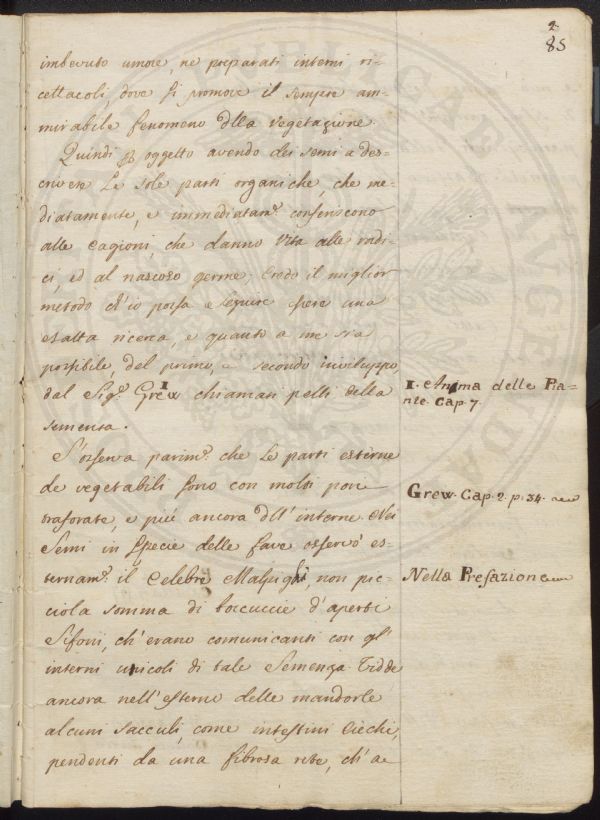 2
85
imbevuto umore, ne preparati interni ri-
cettacoli, dove si promove il sempre am-
mirabile fenomeno dlla vegetazione.
Quindi p oggetto avendo dei semi a des-
crivere Le sole parti organiche, che me-
diatamente, e immediatam.e conferiscono
alle cagioni, che danno vita alle radi-
ci, ed al nascoso germe; Credo il miglior
metodo ch'io possa eseguire essere una
esatta ricerca, e quanto a me sia
possibile, del primo, e secondo inviluppo,
dal Sig.r Grew 1 chiamati pelli della
sementa.
S'osserva parim.e che Le parti esterne
de vegetabili sono con molti pori
traforate, e più ancora dll'interne. Nei
Semi in specie delle fave osservò es-
ternam.e il Celebre Malpighi, non pic-
ciola somma di boccuccie d'aperti
Sifoni, ch'erano comunicanti con gl'
interni utricoli di tale Semenza. Vidde
ancora nell'esterno delle mandorle
alcuni sacculi, come intestini Ciechi,
pendenti da una fibrosa rete, ch'a
1. Anima delle Pia=
nte. Cap. 7.
Grew. Cap. 2. p. 34.
Nella Prefazione